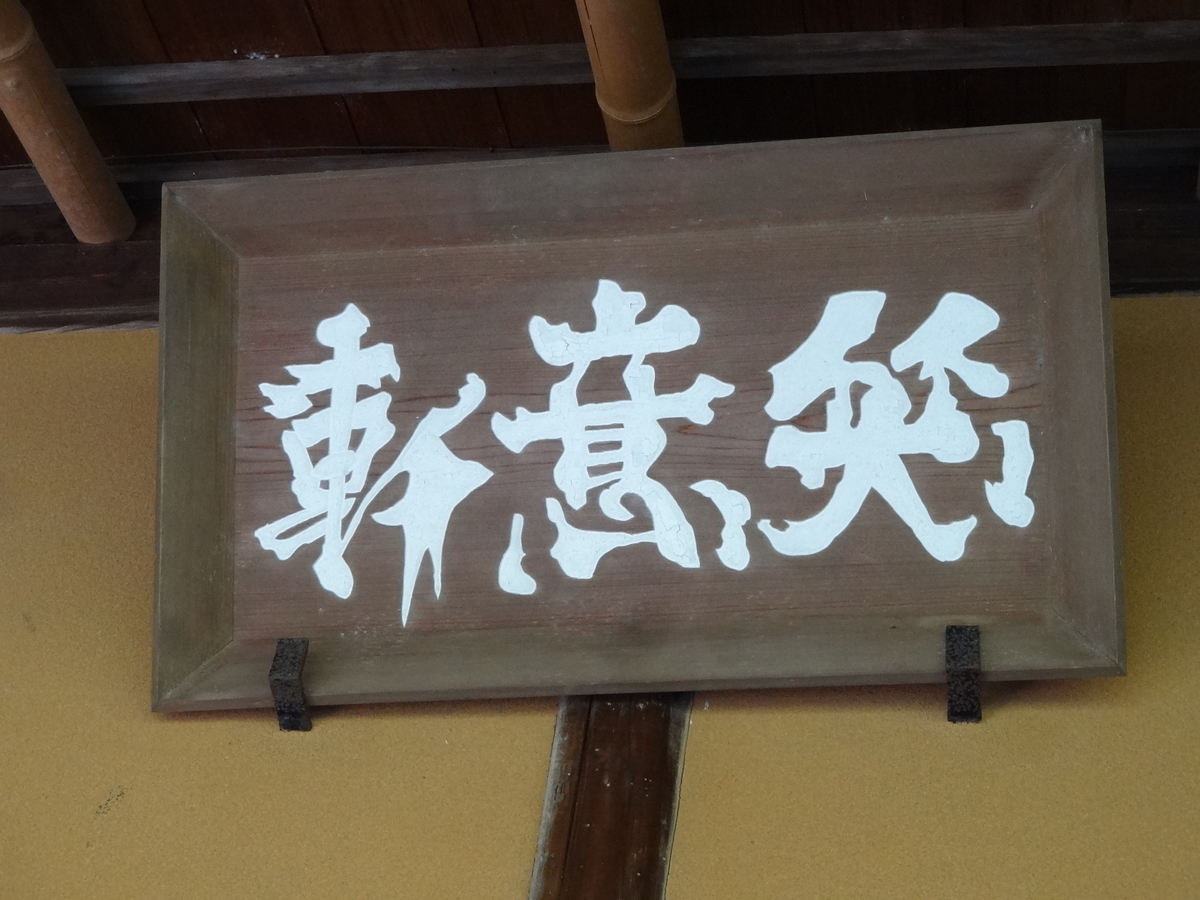 笑意軒